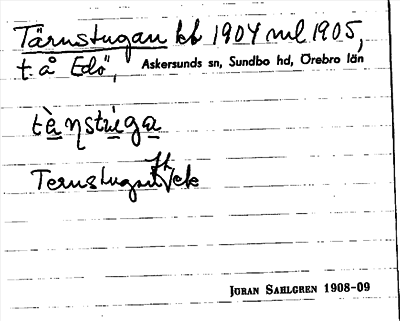 Tärnstugan kb 1904 ml 1905,
t. å Edö", Askersunds sn, Sundbo hd, Örebro län
tèɳstùga
Ternstugan Jfk
JÖRAN SAHLGREN 1908-09